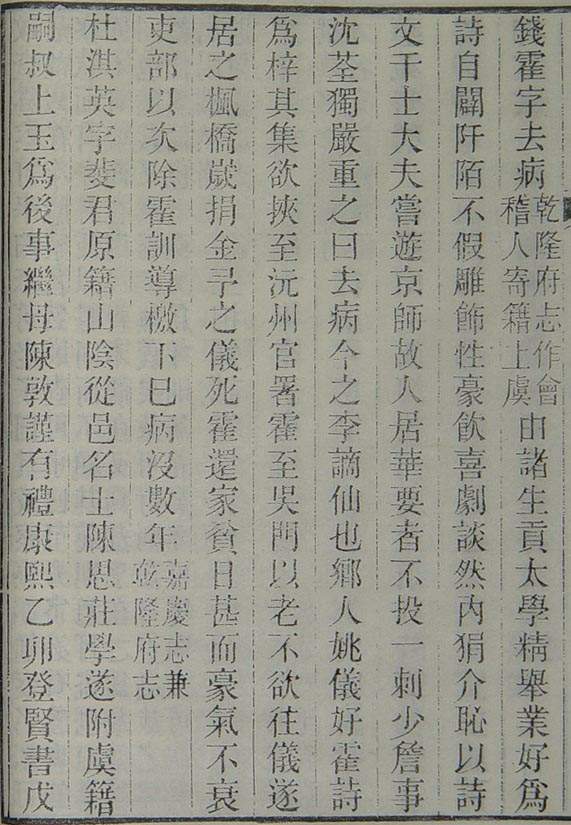 錢霍字去病乾隆府志作會稽人寄籍上虞由諸生貢太學精舉業好爲
詩自闢阡陌不假雕飾性豪飲喜劇談然內狷介恥以詩
文干士大夫嘗遊京師故人居華要者不投一刺少詹事
沈荃獨嚴重之曰去病今之李謫仙也鄉人姚儀好霍詩
爲梓其集欲挾至沅州官署霍至吳門以老不欲往儀遂
居之楓橋歲捐金予之儀死霍還家貧日甚而豪氣不衰
吏部以次除霍訓導檄下已病沒數年嘉慶志兼乾隆府志
杜淇英字斐君原籍山陰從邑名士陳恩莊學遂附虞籍
嗣叔上玉爲後事繼母陳敦謹有禮康熙乙卯登賢書戊